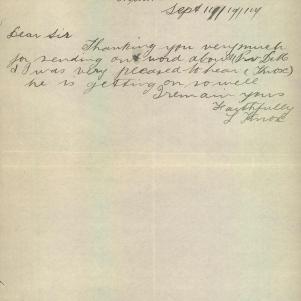 Sept 19/1914
Dear Sir
Thanking you very much
for sending on word about
I was very pleased to hear (Knox)
he is getting on so well
I remain yours
Faithfully
L Knox